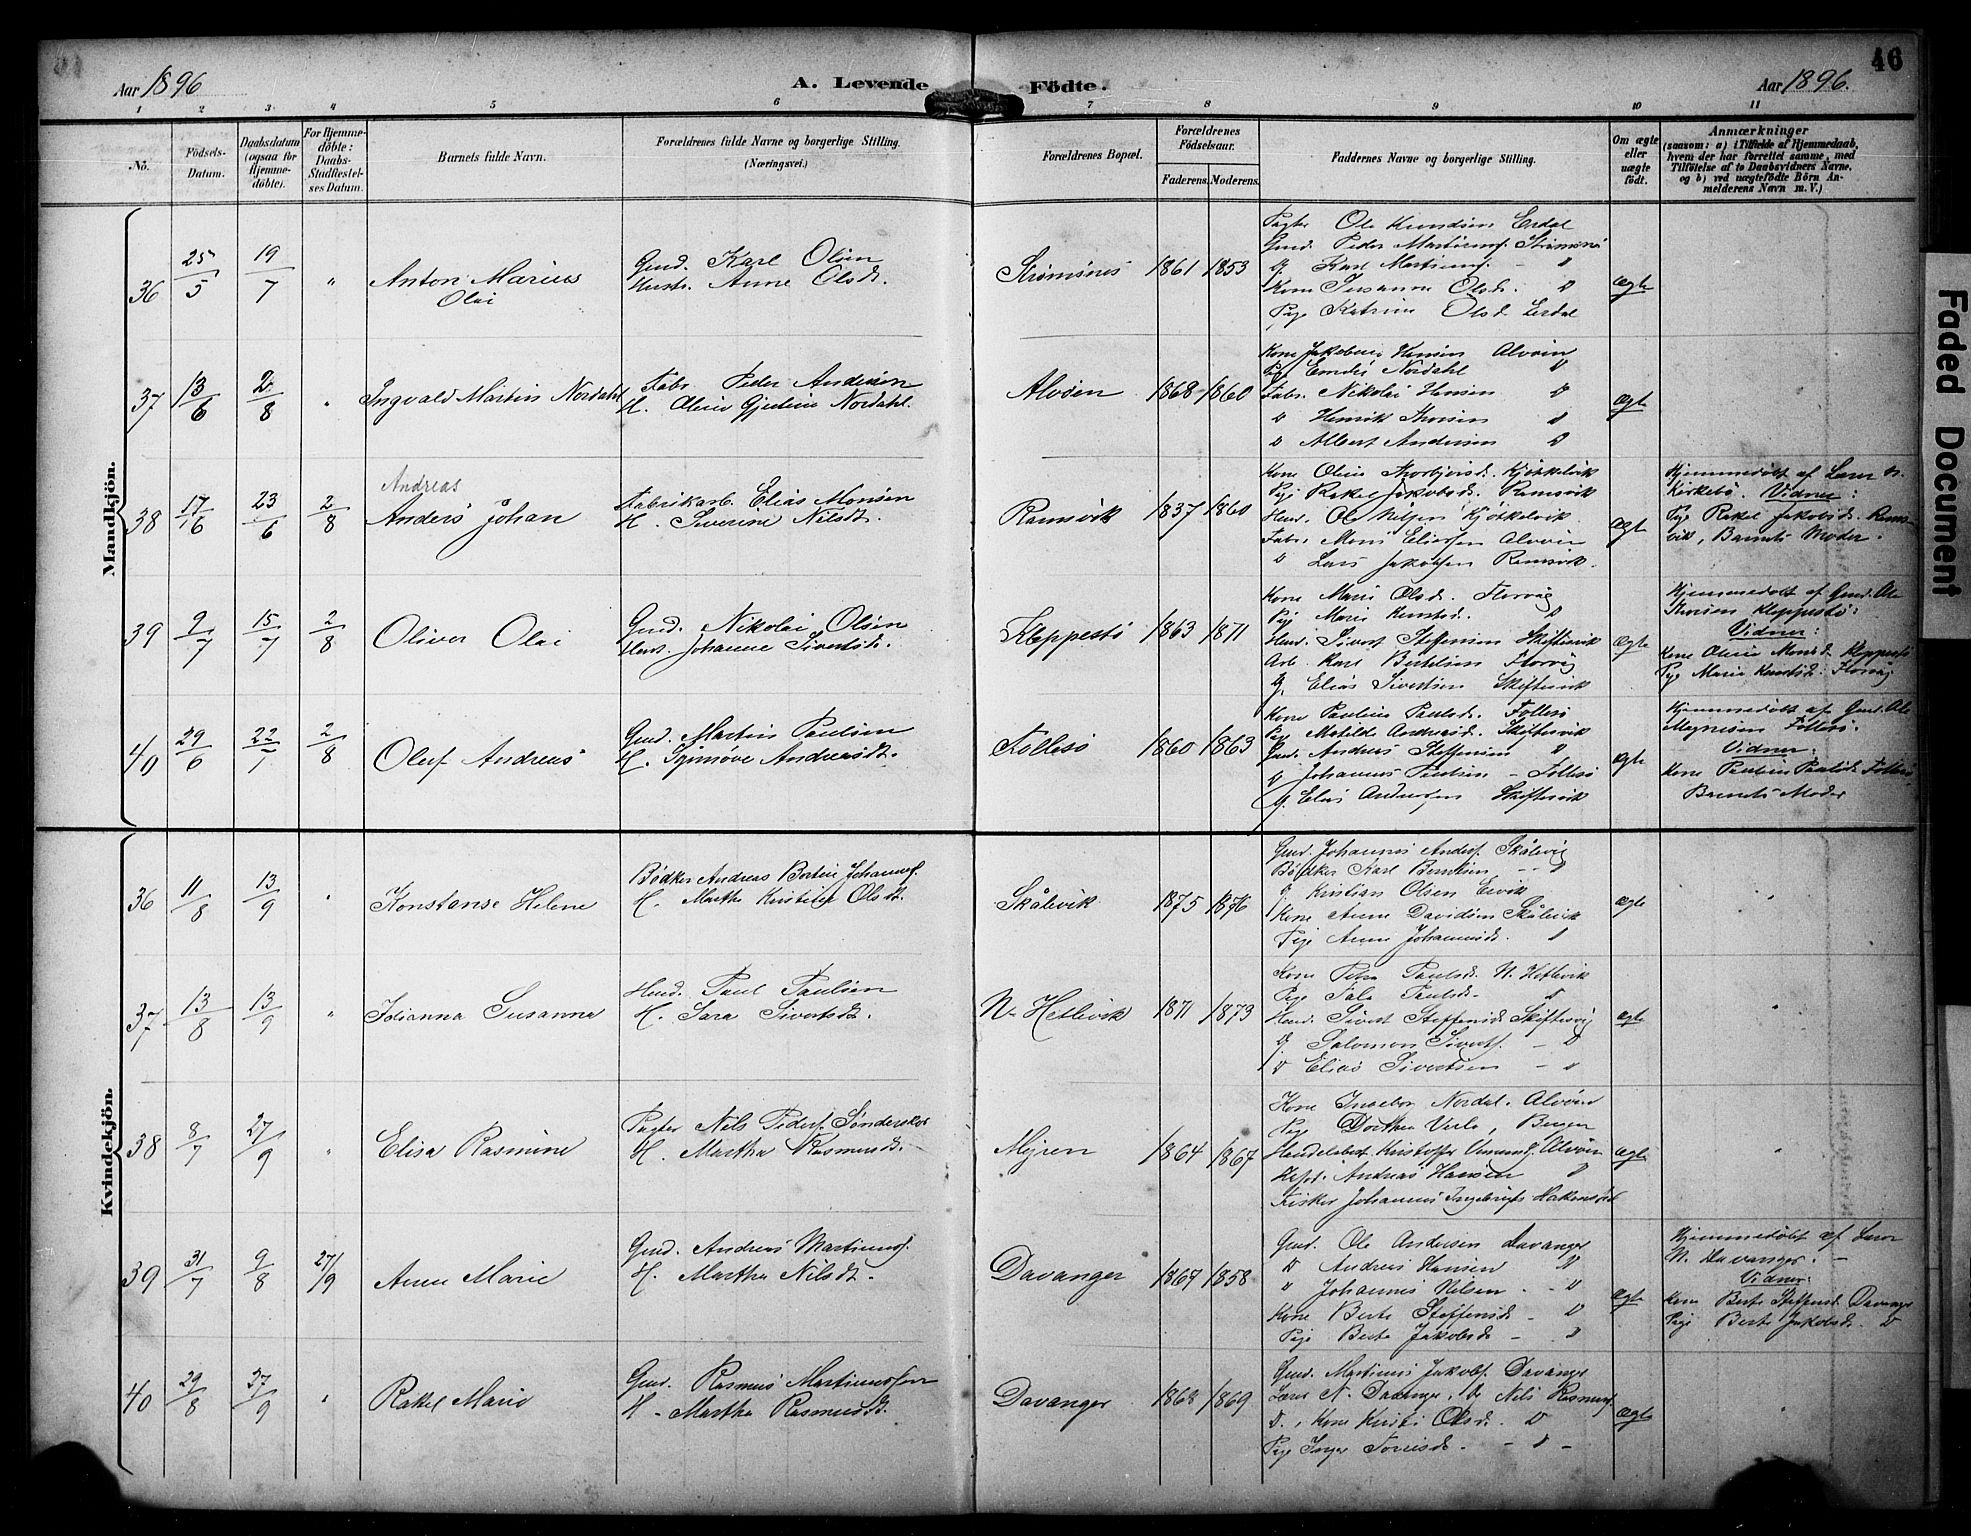 46
Aar 1896
A. Levende Födte.
Aar 1896.
1 2 3 4 5 6 7 8 9 10 11
No.
Födsels-Datum.
Daabsdatum (ogsaa for Hjemme-döbte).
For Hjemme-döbte: Daabs-Stadfæstel-ses Datum.
Barnets fulde Navn.
Forældrenes fulde Navne og borgerlige Stilling. (Næringsvei.)
Forældrenes Bopæl.
Forældrenes Födselsaar.
Faderens. Moderens.
Faddernes Navne og borgerlige Stilling.
Om ægte eller uægte födt.
Anmærkninger
(saasom: a) i Tilfælde af Hjemmedaab,
hvem der har forrettet samme, med
Tilföielse af to Daabsvidners Navne,
og b) ved uægtefödte Börn An-
melderens Navn m. V.)
Mandkjön.
36 25/5 19/7 " Anton Marius Olai
Gmd. Karl Olsen
Hustr. Anne Olsd.
Strømsnes 1861 1853
Pagter Ole Knudsen Erdal
Gmd. Peder Martinus. Strømsnes
G. Karl Martinus. - "
Kone Susanne Olsd. "
Pige Katrine Olsd. Erdal
ægte
37 13/6 2/8 " Ingvald Martin Nordahl
Fabr. Peder Andersen
H. Oline Gjertine Nordahl.
Alvøen 1868 1860
Kone Jakobine Hansen Alvøen
Pige Nordahl "
Fabr. Nikolai Hansen "
" Henrik "
" Albert Andersen "
ægte
38 17/6 23/6 2/8 Andreas
Anders Johan
Fabrikarb. Elias Monsen
H. Severine Nilsdt.
Ramsvik 1837 1860
Kone Oline Thorbjørnsd. Kjøkkelvik
Pige Rakel Jakobsd. Ramsvik
Ole Nilsen Kjøkkelvik
Fabr. Mons Eliassen Alvøen
" Lars Jakobsen Ramsvik.
ægte
Hjemmedøbt af Lærer N.
Kirkebø. Vidner:
Pige Rakel Jakobsd. Rams-
vik, Barnets Moder.
39 9/7 15/7 2/8 Oliver Olai
Gmd. Nikolai Olsen
Hust. Johanne Sivertsd.
Kleppestø 1863 1871
Kone Marie Olsd. Florvåg
Pige Marie Knutsd. "
Sivert Steffensen Skiftesvik
Arb. Karl Bertelsen Florvåg
G. Elias Sivertsen Skiftesvik
ægte
Hjemmedøbt af Gmd. Ole
Kleppestø:
Vidner:
Kone Oline Monsd. Kleppestø
Pige Marie Knutsd. Florvåg
40 29/6 22/7 2/8 Oluf Andreas
Gmd. Martin Paulsen
H. Synnøve Andreasdt.
Follesø 1860 1863
Kone Pauline Paulsd. Follesø
Pige Matilde Andreasd. Skiftesvik
Gmd. Andreas Steffensen "
G. Johannes Paulsen - Follesø
G. Elias Andersen Skiftesvik
ægte
Hjemmedøbt af Gmd. Ole
Magnesen Follesø.
Vidner:
Kone Pauline Paulsd. Follesø
Barnets Moder
Kvindekjön.
36 11/8 13/9 " Konstanse Helene
Bødker Andreas Bertin Johannes.
H. Martha Kirstine Olsdt.
Skålevik 1875 1876
Gmd. Johannes Anders. Skålevig
Bødker Karl Berntsen - "
G. Kristian Olsen Ervik
Kone Anne Davidsen Skålevik
Pige Anne Johannesd. "
ægte "
37 13/8 13/9 " Johanna Susanna
Paul Paulsen
H. Sara Sivertsdt.
N. Hetlevik 1871 1873
Kone Petra Paulsd. N. Hetlevik
Pige Paulsd. "
Sivert Steffens. Skiftesvig
G. Salomon Siverts. - "
" Elias Sivertsen - "
ægte "
38 8/7 27/9 " Elisa Rasmine
Pagter Nils Peders. Sønderskov
H. Martha Rasmusd.
Myren 1864 1867
Kone Ingebor Nordal. Alvøen
Pige Dorthea, Bergen
Handelsbest. Kristoffer Alvøen
Andreas Hansen "
Fisker Johannes Håkonsd.
ægte "
39 31/7 9/8 27/9 Anne Marie
Gmd. Andreas Martinus.
H. Martha Nilsdt.
Davanger 1867 1858
Gmd. Ole Andersen Davanger
" Andreas Hansen "
" Johannes Nilsen - "
Kone Berte Steffensd. - "
Pige Berte Jakobsd. - "
ægte
Hjemmedøbt af Lærer
N. Davanger. -
Vidner:
Kone Berte Steffensd. Davanger
Pige Berte Jakobsd. "
40 29/8 27/9 " Rakel Marie
Gmd. Rasmus Martinussen
H. Martha Rasmusdt.
Davanger 1868 1869
Gmd. Martinus Jakobs. Davanger
Lærer N. Davanger, Nils Rasmus.
", Kone Kirsti Olsd. "
Pige Inger - " -
ægte "
Faded Document